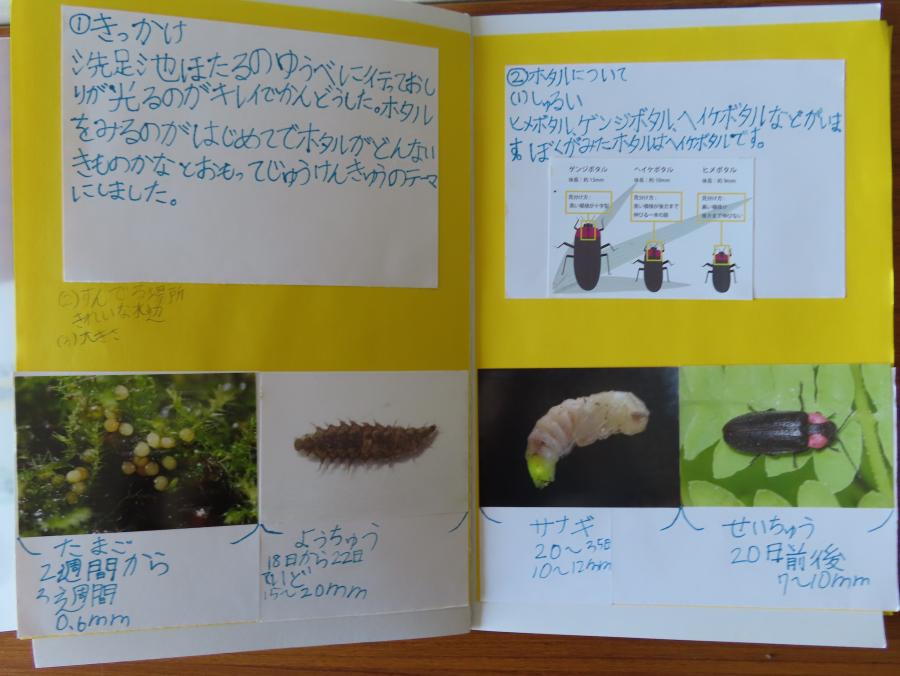 ①きっかけ
洗足池ほたるのゆうべに行っておし
りが光るのがキレイでかんどうした。ホタル
をみるのがはじめてでホタルがどんない
きものかなとおもってじゅうけんきゅうのテーマ
にしました。
(2)すんでる場所
きれいな水辺
(3)大きさ
②ホタルについて
(1)しゅるい
ヒメボタル、ゲンジボタル、ヘイケボタルなどがいま
す。ぼくがみたホタルはヘイケボタルです。
ゲンジボタル
体長：約15mm
見分け方：
黒い模様が十字型
ヘイケボタル
体長：約10mm
見分け方：
黒い模様が後方まで
伸びる一本の筋
ヒメボタル
体長：約9mm
見分け方：
黒い模様は
後方まで伸びない
たまご
2週間から
3週間
0.6mm
ようちゅう
18日から22日
ていど
15〜20mm
サナギ
20〜35日
10〜12mm
せいちゅう
20日前後
7〜10mm